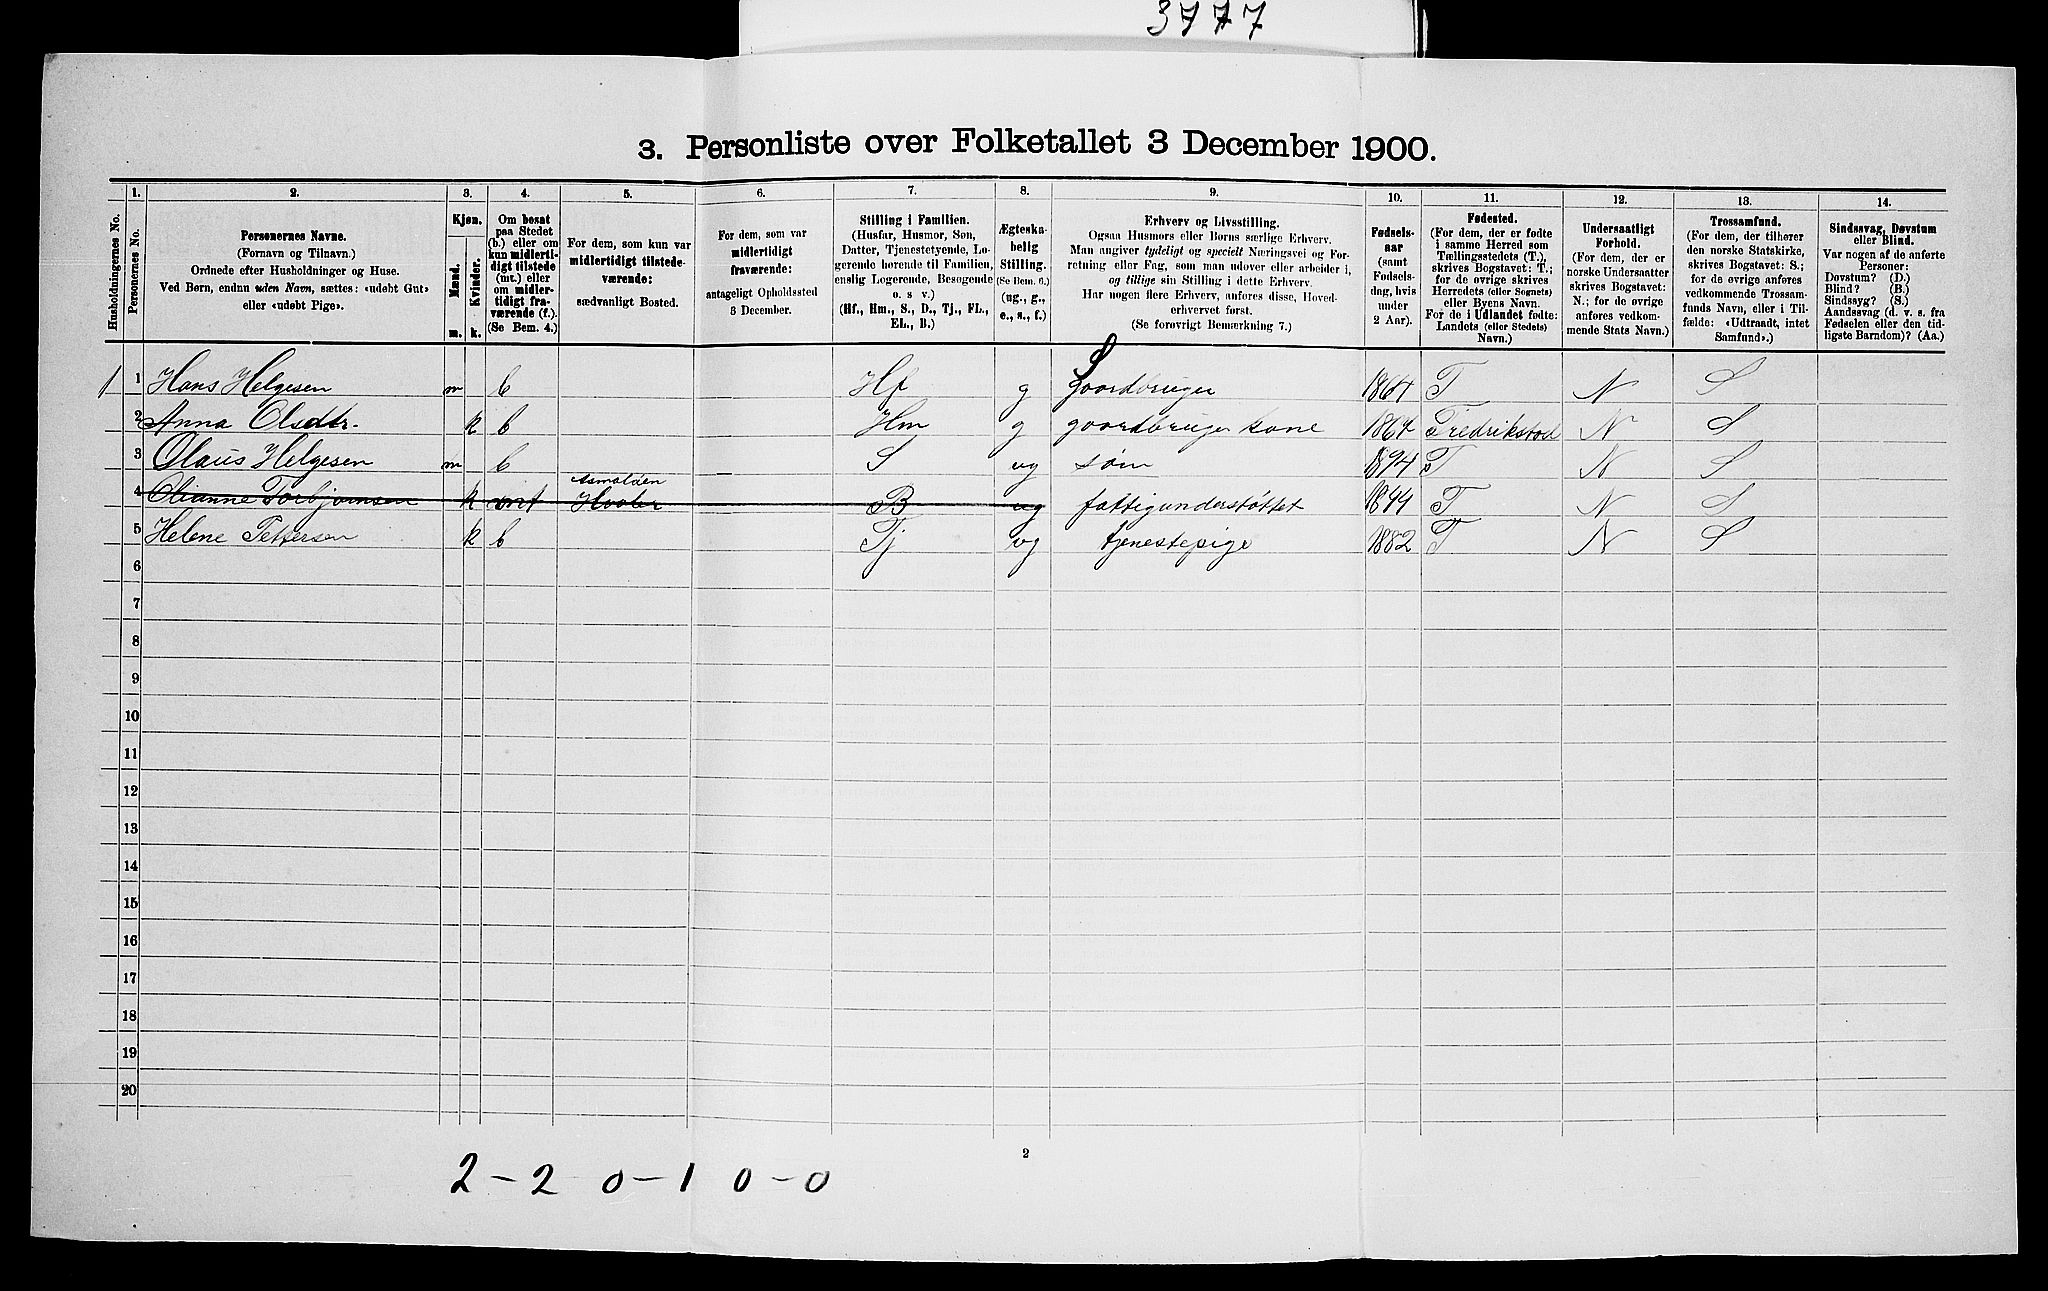 3777
3. Personliste over Folketallet 3 December 1900.
1. 2. 3. 4. 5. 6. 7. 8. 9. 10. 11. 12. 13. 14.
Husholdningernes No.
Personernes No.
Personernes Navne.
(Fornavn og Tilnavn.)
Ordnede efter Husholdninger og Huse.
Ved Børn, endnu uden Navn, sættes: «udøbt Gut»
eller «udøbt Pige».
Kjøn.
Mænd.
Kvinder.
m. k.
Om bosat
paa Stedet
(b.) eller om
kun midlerti-
digt tilstede
(mt.) eller
om midler-
tidigt fra-
værende (f.).
(Se Bem. 4.)
For dem, som kun var
midlertidigt tilstede-
værende:
sædvanligt Bosted.
For dem, som var
midlertidigt
fraværende:
antageligt Opholdssted
3 December.
Stilling i Familien.
(Husfar, Husmor, Søn,
Datter, Tjenestetyende, Lo-
gerende hørende til Familien,
enslig Logerende, Besøgende
o. s. v.)
(Hf., Hm., S., D., Tj., FL.,
EL., B.)
Ægteska-
belig
Stilling.
(Se Bem. 6.)
(ug., g.,
e., s., f.)
Erhverv og Livsstilling.
Ogsaa Husmors eller Børns særlige Erhverv.
Man angiver tydeligt og specielt Næringsvei og For-
retning eller Fag, som man udøver eller arbeider i,
og tillige sin Stilling i dette Erhverv.
Har nogen flere Erhverv, anføres disse, Hoved-
erhvervet først.
(Se forøvrigt Bemærkning 7.)
Fødsels-
aar
(samt
Fødsels-
dag, hvis
under
2 Aar).
Fødested.
(For dem, der er fødte
i samme Herred som
Tællingsstedets (T.),
skrives Bogstavet: T.;
for de øvrige skrives
Herredets (eller Sognets)
eller Byens Navn.
For de i Udlandet fødte:
Landets (eller Stedets)
Navn.)
Undersaatligt
Forhold.
(For dem, der er
norske Undersaatter
skrives Bogstavet:
N.; for de øvrige
anføres vedkom-
mende Stats Navn.)
Trossamfund.
(For dem, der tilhører
den norske Statskirke,
skrives Bogstavet: S.;
for de øvrige anføres
vedkommende Trossam-
funds Navn, eller i Til-
fælde: «Udtraadt, intet
Samfund».)
Sindssvag, Døvstum
eller Blind.
Var nogen af de anførte
Personer:
Døvstum? (D.)
Blind? (B.)
Sindssyg? (S.)
Aandssvag (d. v. s. fra
Fødselen eller den tid-
ligste Barndom)? (Aa.)
1 1 Hans Helgesen m b Hf g Gaardbruger 1864 T N S
2 Anna Olsdtr. k b Hm g gaardbruger kone 1864 Fredrikstad N S
3 Olaus Helgesen m b S ug søn 1894 T N S
Asmaløen
4 Olianne Torbjørnsen k mt Hvaler B ug fattigunderstøttet 1844 T N S
5 Helene Pettersen k b Tj ug tjenestepige 1882 T N S
6
7
8
9
10
11
12
13
14
15
16
17
18
19
20
2
2 - 2 0 - 1 0 - 0